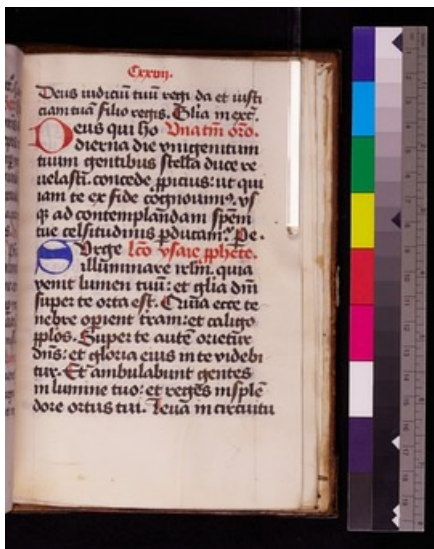 Cxxvij.
Deus iudiciū tuū regi da et iusti
ciam tuā filio regis. Glīa in exc̄.
Deus qui ho Vna tm̄ or̄o.
dierna die vnigenitum
tuum gentibus stella duce re
uelasti. concede ꝓpicius: ut qui
iam te ex fide cognouimꝰ. vs
qꝫ ad contemplandam spēm
tue celsitudinis ꝓducam̄. Pe.
Surge lc̄o ysaie ꝓphete.
illuminare irlm̄. quia
venit lumen tuū: et glīa dn̄i
super te orta est. Quia ecce te
nebre opient terram: et caligo
pplos. Super te autē orietur
dn̄s: et gloria eius in te videbi
tur. Et ambulabunt gentes
in lumine tuo: et reges in splē
dore ortus tui. Leua in circuitu